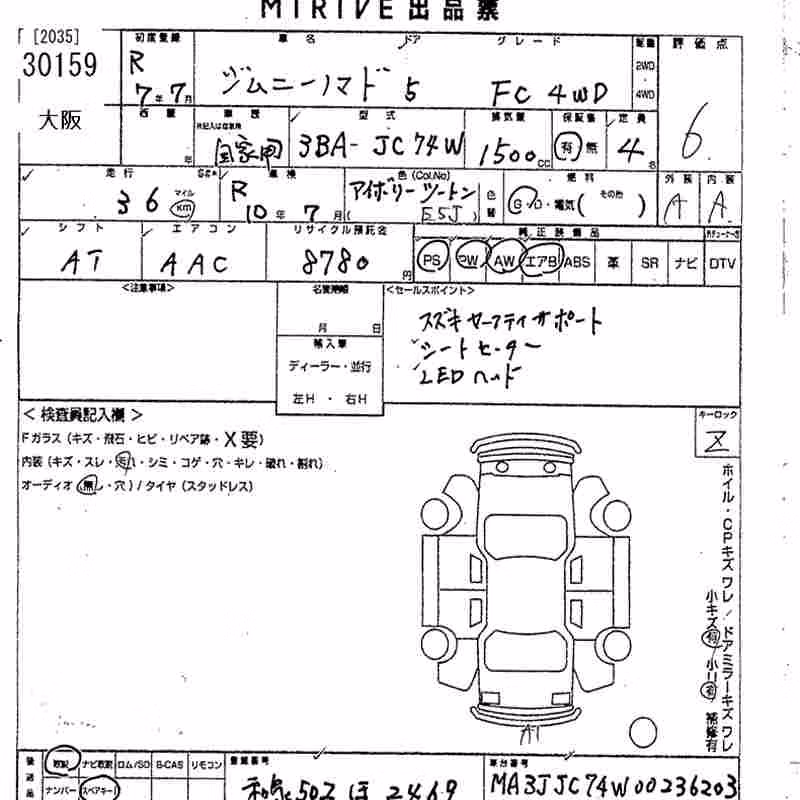 MIRIVE 出品票
[2035]
30159
大阪
初度登録 車名 ドア グレード 駆動 評価点
R 7年7月 ジムニーノマド 5 FC 4WD 2WD 4WD 6
車歴 型式 排気量 保証書 定員
年 自家用 3BA-JC74W 1500cc 有 無 4名
走行 車検 色(Col.No) 燃料 外装 内装
36 マイル km R 10年7月 アイボリーツートン (E5J) 色替 G・D・電気( その他 ) A A
シフト エアコン リサイクル預託金 純正装備品
AT AAC 8780円 PS PW AW エアB ABS 革 SR ナビ DTV
<注意事項> 名変期限 <セールスポイント>
月 日
スズキセーフティサポート
輸入車
シートヒーター
ディーラー・並行
LEDヘッド
左H ・ 右H
<検査員記入欄> キーロック
Z
Fガラス (キズ・飛石・ヒビ・リペア跡・X要)
内装 (キズ・スレ・汚れ・シミ・コゲ・穴・キレ・破れ・割れ)
オーディオ (無し・穴) / タイヤ (スタッドレス)
ホイル・CPキズワレ / ドアミラーキズワレ
小キズ有 小凹有 補修有
A1
後送品 取説 ナビ取説 ロム/SD B-CAS リモコン 登録番号 車台番号
ナンバー スペアキー 502 ほ 2469 MA3JJC74W00236203